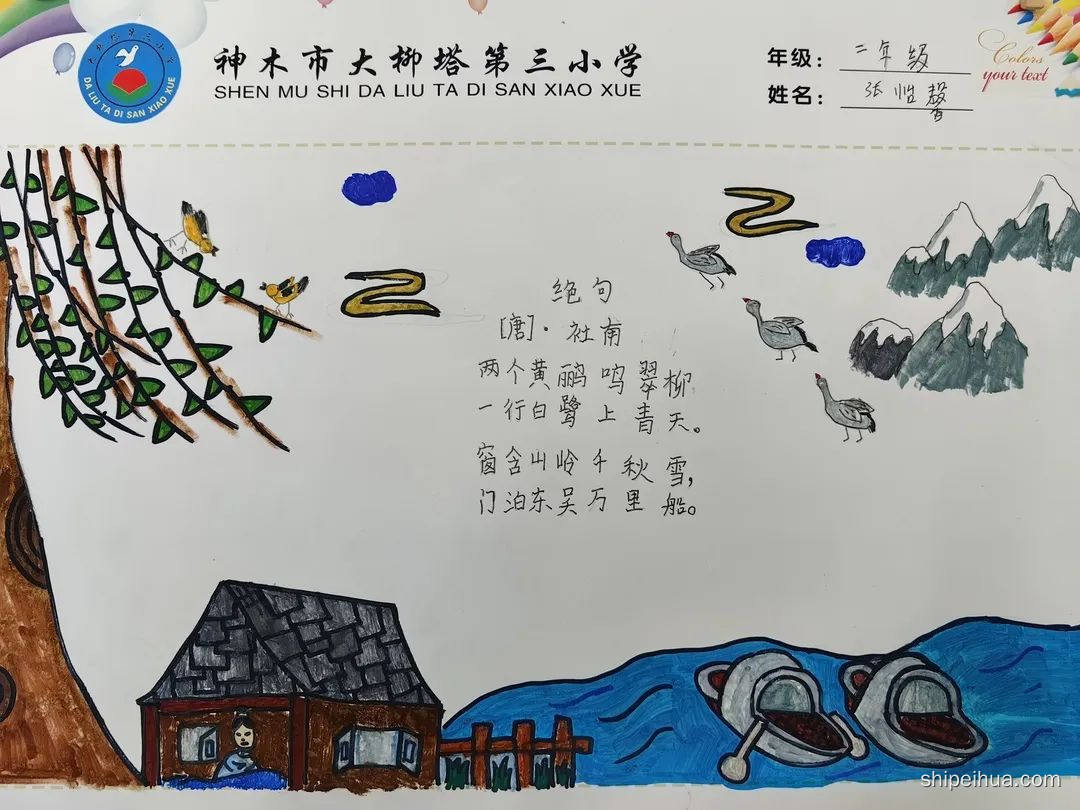 神木市大柳塔第三小学
SHEN MU SHI DA LIU TA DI SAN XIAO XUE
大柳塔第三小学
DA LIU TA DI SAN XIAO XUE
年级：二年级
姓名：张怡馨
Colors
your text
绝句
[唐]·社甫
两个黄鹂鸣翠柳
一行白鹭上青天。
窗含山岭千秋雪，
门泊东吴万里船。
shipeihua.com